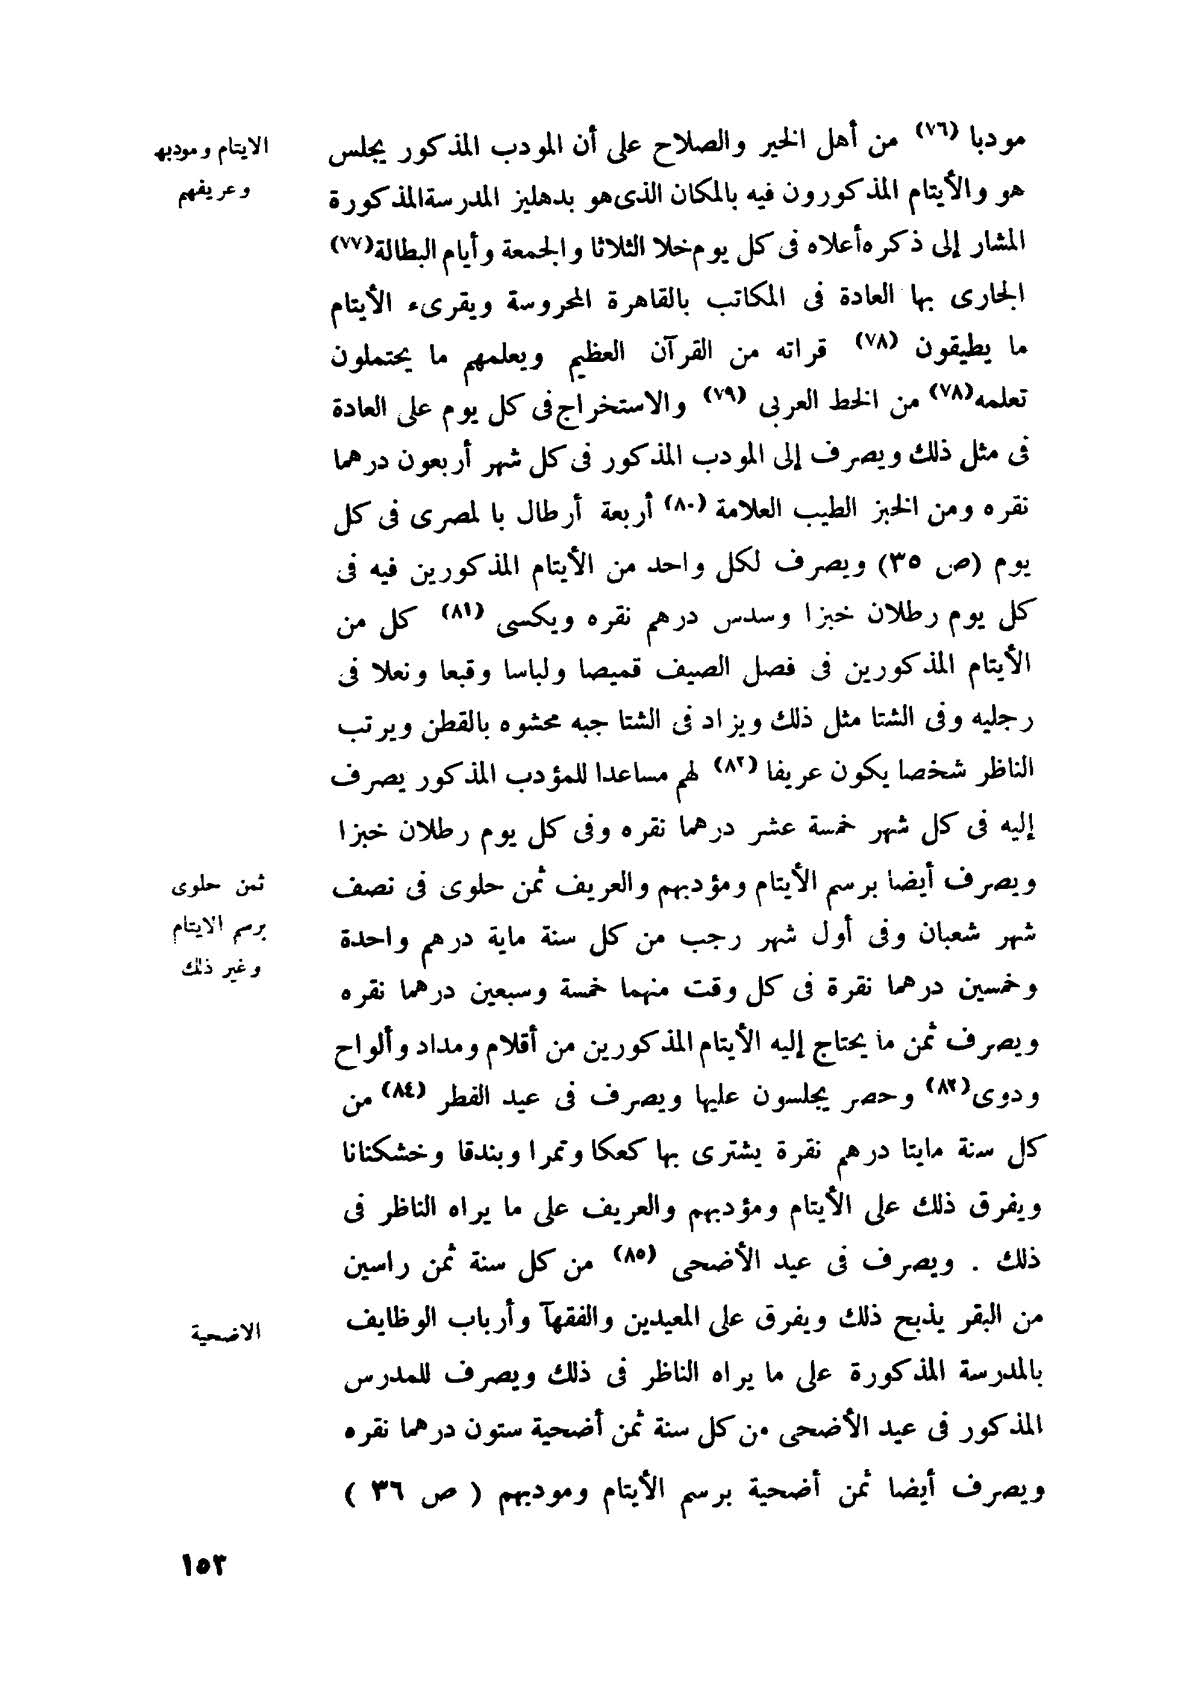 الايتام ومودبهم
وعريفهم
مودبا (٧٦) من أهل الخير والصلاح على أن المودب المذكور يجلس
هو والأيتام المذكورون فيه بالمكان الذى هو بدهليز المدرسة المذكورة
المشار إلى ذكره أعلاه فى كل يوم خلا الثلاثا والجمعة وأيام البطالة (٧٧)
الجارى بها العادة فى المكاتب بالقاهرة المحروسة ويقرىء الأيتام
ما يطيقون (٧٨) قراته من القرآن العظيم ويعلمهم ما يحتملون
تعلمه (٧٨) من الخط العربى (٧٩) والاستخراج فى كل يوم على العادة
فى مثل ذلك ويصرف إلى المودب المذكور فى كل شهر أربعون درهما
نقره ومن الخبز الطيب العلامة (٨٠) أربعة أرطال با لمصرى فى كل
يوم (ص ٣٥) ويصرف لكل واحد من الأيتام المذكورين فيه فى
كل يوم رطلان خبزا وسدس درهم نقره ويكسى (٨١) كل من
الأيتام المذكورين فى فصل الصيف قميصا ولباسا وقبعا ونعلا فى
رجليه وفى الشتا مثل ذلك ويزاد فى الشتا جبه محشوه بالقطن ويرتب
الناظر شخصا يكون عريفا (٨٢) لهم مساعدا للمؤدب المذكور يصرف
إليه فى كل شهر خمسة عشر درهما نقره وفى كل يوم رطلان خبزا
ثمن حلوى
برسم الايتام
وغير ذلك
ويصرف أيضا برسم الأيتام ومؤدبهم والعريف ثمن حلوى فى نصف
شهر شعبان وفى أول شهر رجب من كل سنة ماية درهم واحدة
وخمسين درهما نقرة فى كل وقت منهما خمسة وسبعين درهما نقره
ويصرف ثمن ما يحتاج إليه الأيتام المذكورين من أقلام ومداد وألواح
ودوى (٨٣) وحصر يجلسون عليها ويصرف فى عيد الفطر (٨٤) من
كل سنة مايتا درهم نقرة يشترى بها كعكا وتمرا وبندقا وخشكنانا
ويفرق ذلك على الأيتام ومؤدبهم والعريف على ما يراه الناظر فى
ذلك . ويصرف فى عيد الأضحى (٨٥) من كل سنة ثمن راسين
الاضحية
من البقر يذبح ذلك ويفرق على المعيدين والفقهآ وأرباب الوظايف
بالمدرسة المذكورة على ما يراه الناظر فى ذلك ويصرف للمدرس
المذكور فى عيد الأضحى من كل سنة ثمن أضحية ستون درهما نقره
ويصرف أيضا ثمن أضحية برسم الأيتام ومودبهم ( ص ٣٦ )
١٥٣